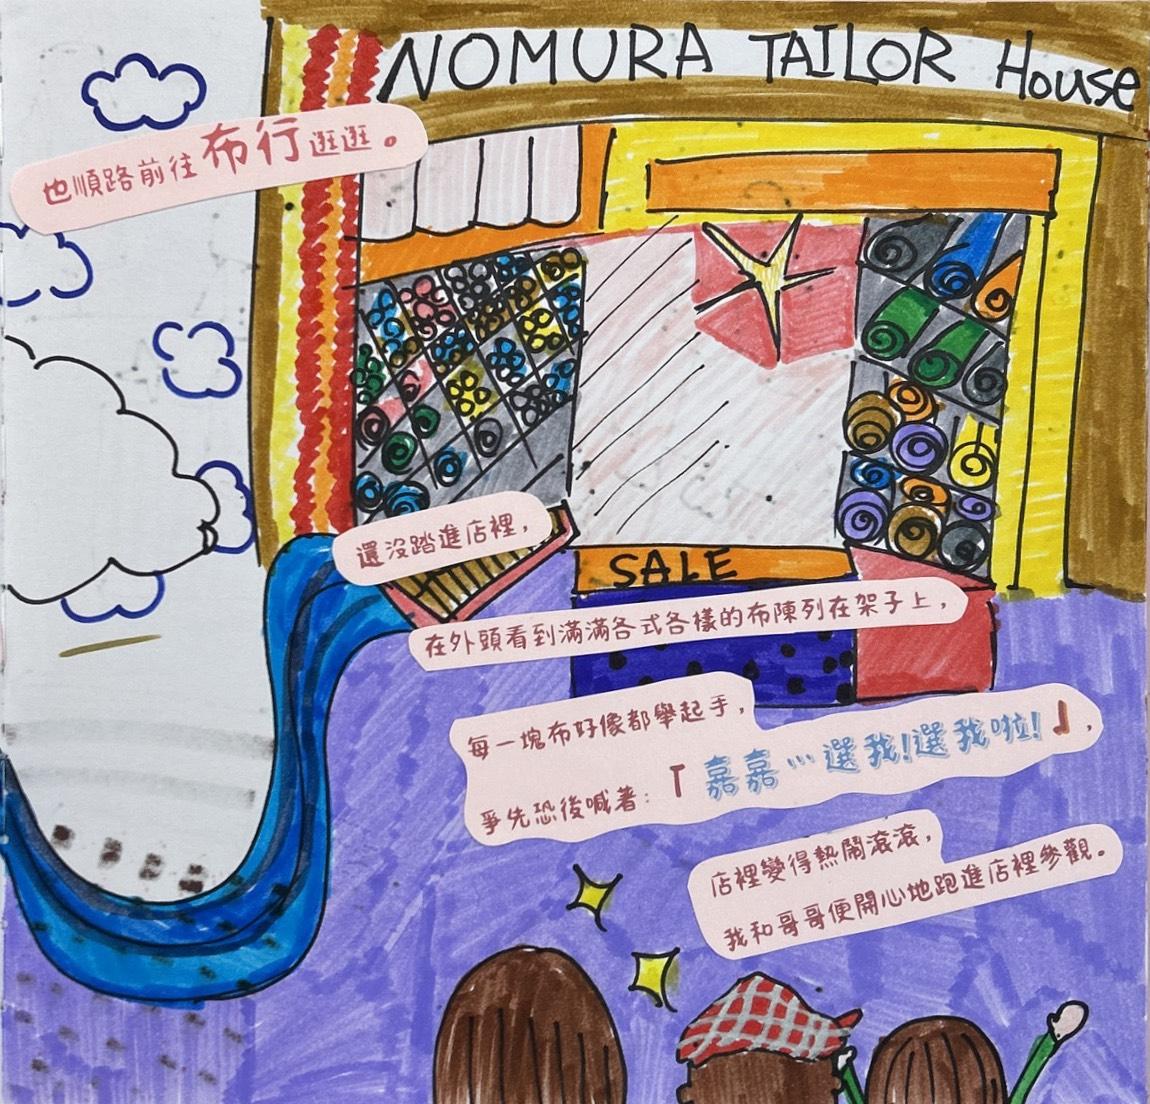 NOMURA TAILOR House
也順路前往布行逛逛。
還沒踏進店裡，
SALE
在外頭看到滿滿各式各樣的布陳列在架子上，
每一塊布好像都舉起手，
爭先恐後喊著：「嘉嘉…選我！選我啦！」，
店裡變得熱鬧滾滾，
我和哥哥便開心地跑進店裡參觀。